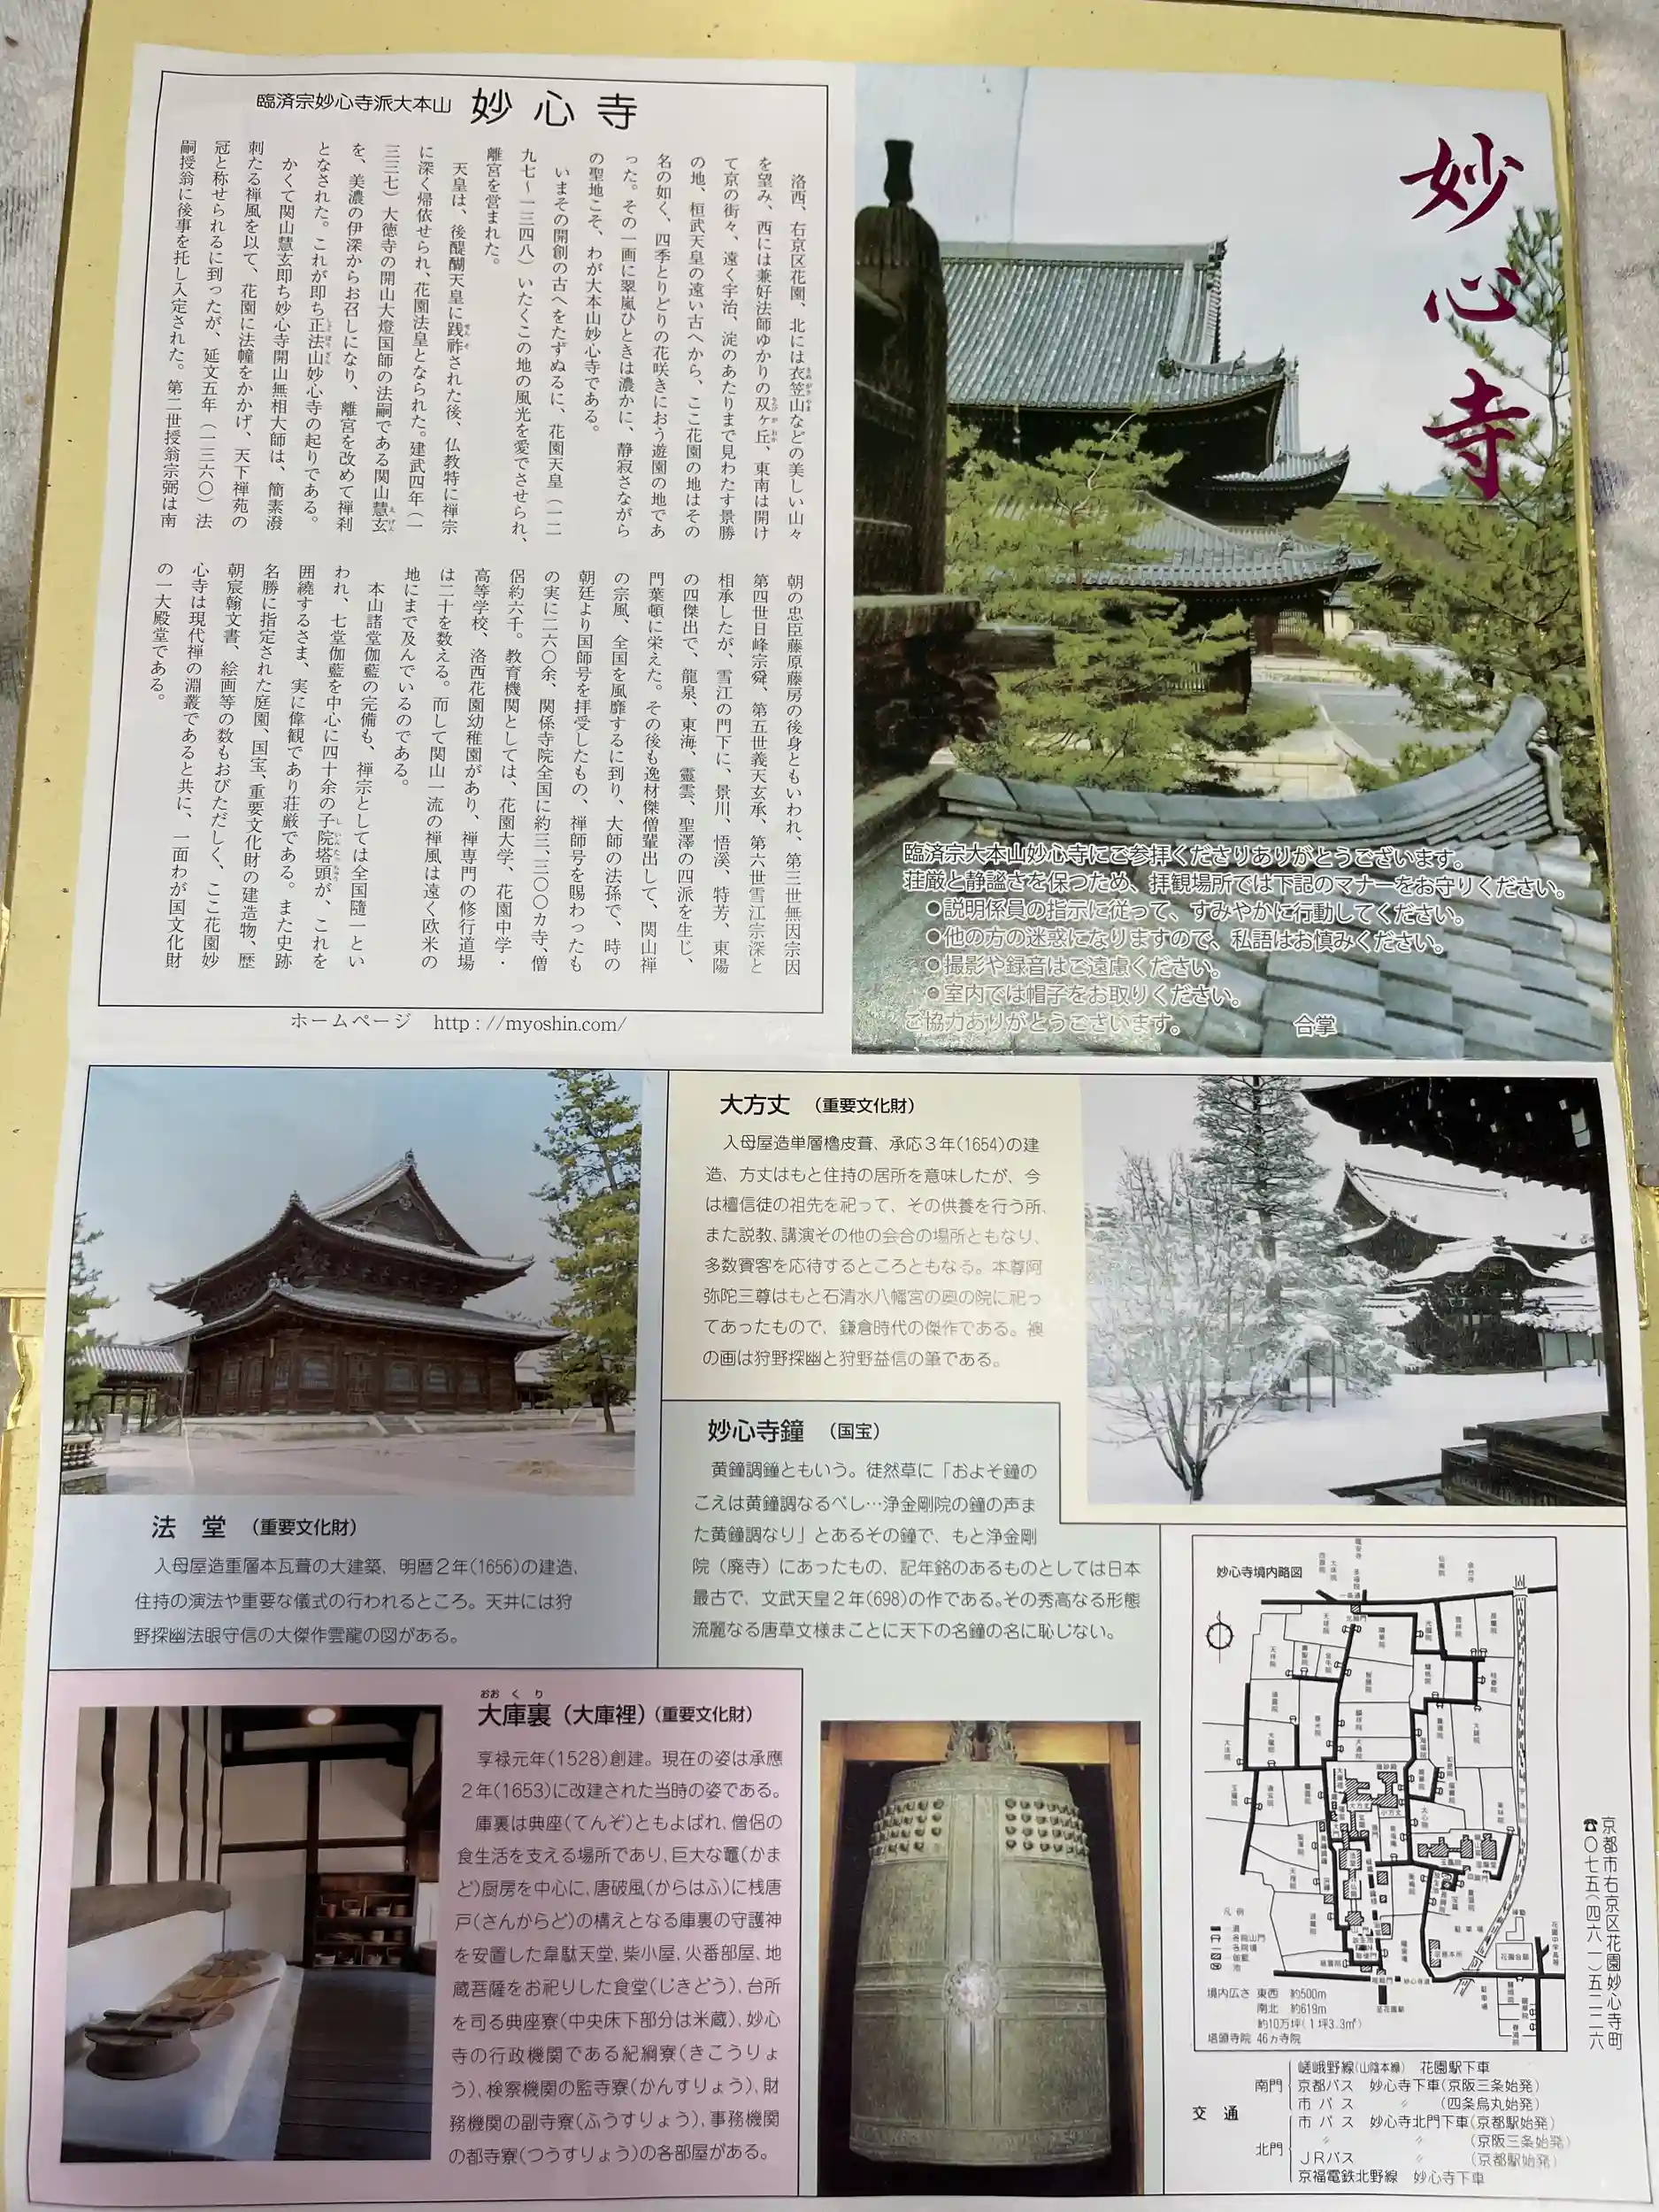 臨済宗妙心寺派大本山 妙心寺
洛西、右京区花園、北には衣笠山などの美しい山々
を望み、西には兼好法師ゆかりの双ヶ丘、東南は開け
て京の街々、遠く宇治、淀のあたりまで見わたす景勝
の地、桓武天皇の遠い古へから、ここ花園の地はその
名の如く、四季とりどりの花咲きにおう遊園の地であ
った。その一画に翠嵐ひときは濃かに、静寂さながら
の聖地こそ、わが大本山妙心寺である。
いまその開創の古へをたずぬるに、花園天皇（一二
九七〜一三四八）いたくこの地の風光を愛でさせられ、
離宮を営まれた。
天皇は、後醍醐天皇に践祚された後、仏教特に禅宗
に深く帰依せられ、花園法皇となられた。建武四年（一
三三七）大徳寺の開山大燈国師の法嗣である関山慧玄
を、美濃の伊深からお召しになり、離宮を改めて禅刹
となされた。これが即ち正法山妙心寺の起りである。
かくて関山慧玄即ち妙心寺開山無相大師は、簡素潑
刺たる禅風を以て、花園に法幢をかかげ、天下禅苑の
冠と称せられるに到ったが、延文五年（一三六〇）法
嗣授翁に後事を托し入定された。第二世授翁宗弼は南
朝の忠臣藤原藤房の後身ともいわれ、第三世無因宗因
第四世日峰宗舜、第五世義天玄承、第六世雪江宗深と
相承したが、雪江の門下に、景川、悟溪、特芳、東陽
の四傑出で、龍泉、東海、靈雲、聖澤の四派を生じ、
門葉頓に栄えた。その後も逸材傑僧輩出して、関山禅
の宗風、全国を風靡するに到り、大師の法孫で、時の
朝廷より国師号を拝受したもの、禅師号を賜わったも
の実に二六〇余、関係寺院全国に約三、三〇〇カ寺、僧
侶約六千。教育機関としては、花園大学、花園中学・
高等学校、洛西花園幼稚園があり、禅専門の修行道場
は二十を数える。而して関山一流の禅風は遠く欧米の
地にまで及んでいるのである。
本山諸堂伽藍の完備も、禅宗としては全国隨一とい
われ、七堂伽藍を中心に四十余の子院塔頭が、これを
囲繞するさま、実に偉観であり荘厳である。また史跡
名勝に指定された庭園、国宝、重要文化財の建造物、歴
朝宸翰文書、絵画等の数もおびただしく、ここ花園妙
心寺は現代禅の淵叢であると共に、一面わが国文化財
の一大殿堂である。
ホームページ http://myoshin.com/
妙心寺
臨済宗大本山妙心寺にご参拝くださりありがとうございます。
荘厳と静謐さを保つため、拝観場所では下記のマナーをお守りください。
●説明係員の指示に従って、すみやかに行動してください。
●他の方の迷惑になりますので、私語はお慎みください。
●撮影や録音はご遠慮ください。
●室内では帽子をお取りください。
ご協力ありがとうございます。 合掌
大方丈 （重要文化財）
入母屋造単層檜皮葺、承応3年(1654)の建
造、方丈はもと住持の居所を意味したが、今
は檀信徒の祖先を祀って、その供養を行う所、
また説教、講演その他の会合の場所ともなり、
多数賓客を応待するところともなる。本尊阿
弥陀三尊はもと石清水八幡宮の奥の院に祀っ
てあったもので、鎌倉時代の傑作である。襖
の画は狩野探幽と狩野益信の筆である。
妙心寺鐘 （国宝）
黄鐘調鐘ともいう。徒然草に「およそ鐘の
こえは黄鐘調なるべし…浄金剛院の鐘の声ま
た黄鐘調なり」とあるその鐘で、もと浄金剛
院（廃寺）にあったもの、記年銘のあるものとしては日本
最古で、文武天皇2年(698)の作である。その秀高なる形態
流麗なる唐草文様まことに天下の名鐘の名に恥じない。
法堂 （重要文化財）
入母屋造重層本瓦葺の大建築、明暦2年(1656)の建造、
住持の演法や重要な儀式の行われるところ。天井には狩
野探幽法眼守信の大傑作雲龍の図がある。
おおくり
大庫裏（大庫裡）（重要文化財）
享禄元年(1528)創建。現在の姿は承應
2年(1653)に改建された当時の姿である。
庫裏は典座(てんぞ)ともよばれ、僧侶の
食生活を支える場所であり、巨大な竈(かま
ど)厨房を中心に、唐破風(からはふ)に桟唐
戸(さんからど)の構えとなる庫裏の守護神
を安置した韋駄天堂、柴小屋、火番部屋、地
蔵菩薩をお祀りした食堂(じきどう)、台所
を司る典座寮(中央床下部分は米蔵)、妙心
寺の行政機関である紀綱寮(きこうりょ
う)、検察機関の監寺寮(かんすりょう)、財
務機関の副寺寮(ふうすりょう)、事務機関
の都寺寮(つうすりょう)の各部屋がある。
妙心寺境内略図
凡例
道
各院山門
各院境
伽藍
池
境内広さ 東西 約500m
南北 約619m
約10万坪(1坪3.3㎡)
塔頭寺院 46ヵ寺院
京都市右京区花園妙心寺町
☎〇七五(四六一)五二二六
交通
南門
嵯峨野線(山陰本線) 花園駅下車
京都バス 妙心寺下車(京阪三条始発)
市バス 〃 (四条烏丸始発)
北門
市バス 妙心寺北門下車(京都駅始発)
〃 〃 (京阪三条始発)
JRバス 〃 (京都駅始発)
京福電鉄北野線 妙心寺下車